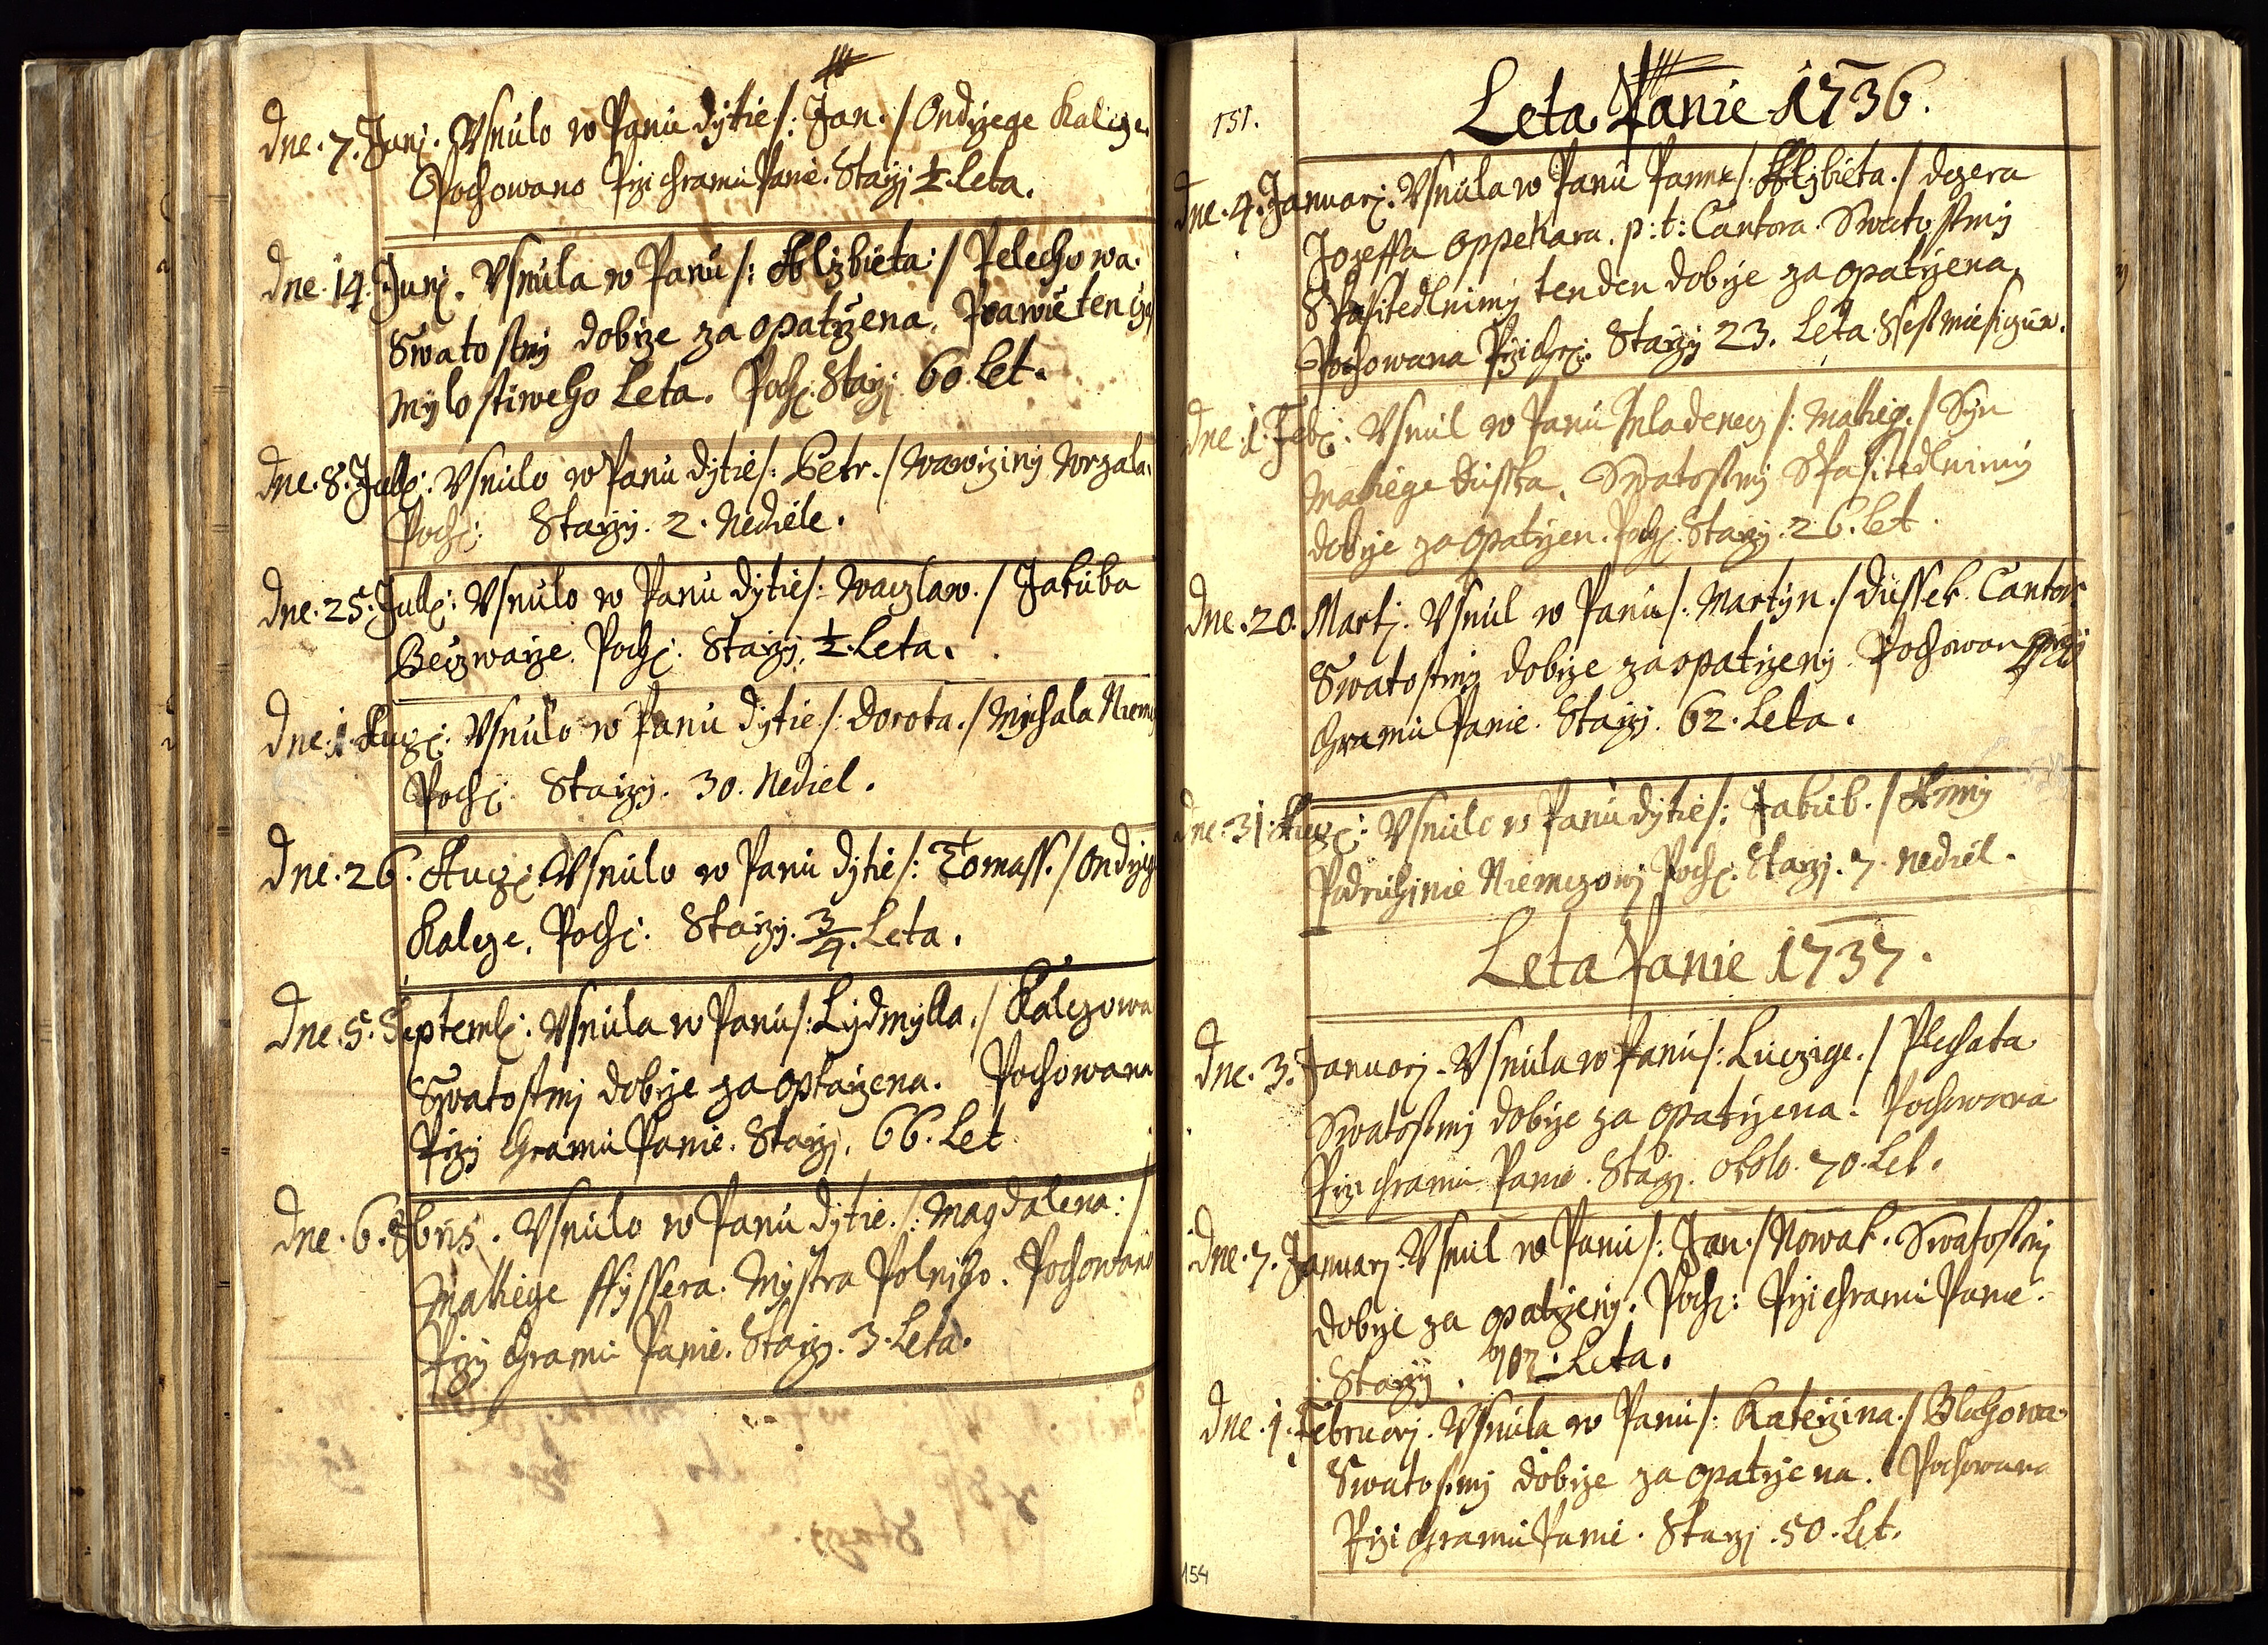 Dne. 7. Junj. Vsnulo w Panu dytie /: Jan. / Ondrzege Kalcze.
Pochowano Przi Chramu Panie. Starzj ½. Leta.
Dne. 14. Junj. Vsnula w Panu /: Alzbieta :/ Pelechowa.
Swatostmj dobrze zaopatrzena. Prawie ten
Mylostiweho Leta. Poch: Starzj. 60. Let.
Dne. 8. Julj: Vsnulo w Panu dytie /: Petr. / Wawrziny Wrzala.
Poch: Starzj. 2. Nediele.
Dne. 25. Julj: Vsnulo w Panu dytie /: Waczlaw. / Jakuba
Beczwarze. Poch: Starzj. ½. Leta.
Dne. 1. Aug: Vsnulo w Panu dytie /: Dorota. / Mychala
Poch: Starzj. 30. Nediel.
Dne. 26. Aug: Vsnulo w Panu dytie /: Tomass. / Ondrzege
Kalcze. Poch: Starzj. 3/4. Leta.
Dne. 5. Septemb: Vsnula w Panu /: Lydmylla. / Kalczowa
Swatostmj dobrze zaoptarzena. Pochowana
Przy Chramu Panie. Starzj. 66. Let
Dne. 6. 8bris. Vsnulo w Panu dytie. /: Magdalena: /
Matiege Ffyssera. Mystra Polniho. Pochowano
Przy Chramu Panie. Starzj. 3. Leta.
151.
Leta Panie 1736.
Dne. 4. Januarj. Vsnula w Panu Panna /: Alzbieta. / dczera
Jozeffa Oppekara. p: t: Cantora. Swatostmj
Spasitedlnimy ten den dobrze zaopatrzena.
Pochowana Przi Chr: Starzj 23. Leta Ssest Miesiczuw.
Dne. 1. Feb: Vsnul w Panu Mladenecz /: Matieg. / Syn
Matiege Dusska. Swatostmj Spasitedlnimy
dobrze zaopatrzen. Poch: Starzj. 26. Let.
Dne. 20. Martj. Vsnul w Panu /: Martyn. / Dussek. Cantor.
Swatostmj dobrze zaopatrzeny. Pochowan Przj
Chramu Panie. Starzj. 62. Leta.
Dne. 31. Aug: Vsnulo w Panu dytie /: Jakub. / Anny
Podruhinie Niemczowj Poch: Starzj. 7. Nediel.
Leta Panie 1737.
Dne. 3. Januarj. Vsnula w Panu /: Luczige. / Plechata
Swatostmj dobrze zaopatrzena. Pochowana
Przi Chramu Panie. Starzj. okolo. 70. Let.
Dne. 7. Januarj. Vsnul w Panu /: Jan. / Nowak. Swatostmj
dobrze zaopatrzeny. Poch: Przi Chramu Panie.
Starzj. Leta.
Dne. 1. Februarj. Vsnula w Panu /: Katerzina. / Blahowa
Swatostmj dobrze zaopatrzena. Pochowana
Przi Chramu Panie. Starzj. 50. Let.
154